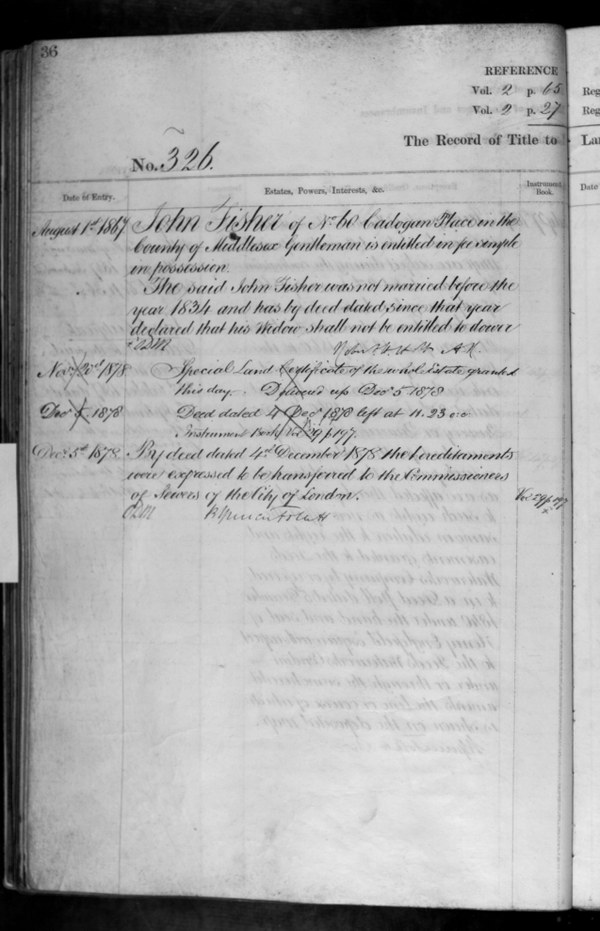 36
REFERENCE
Vol. 2 p. 65
Vol. 2 p. 27
Reg
Reg
The Record of Title to Lan
No. 326.
Date of Entry. Estates, Powers, Interests, &c. Instrument Book. Date
August 1st 1867 John Fisher of No 60 Cadogan Place in the
County of Middlesex Gentleman is entitled in fee simple
in possession.
The said John Fisher was not married before the
year 1834 and has by deed dated since that year
declared that his Widow shall not be entitled to dower
Novr 23rd 1878 Special Land Certificate of the whole Estate granted
this day. Delivered up Decr 5 1878
Decr 4 1878 Deed dated 4 Decr 1878 left at 11.23 o.c
Instrument Book Vol 29 p 197.
Decr 5th 1878 By deed dated 4th December 1878 the hereditaments
were expressed to be transferred to the Commissioners
of Sewers of the City of London. Vol 29 p 197